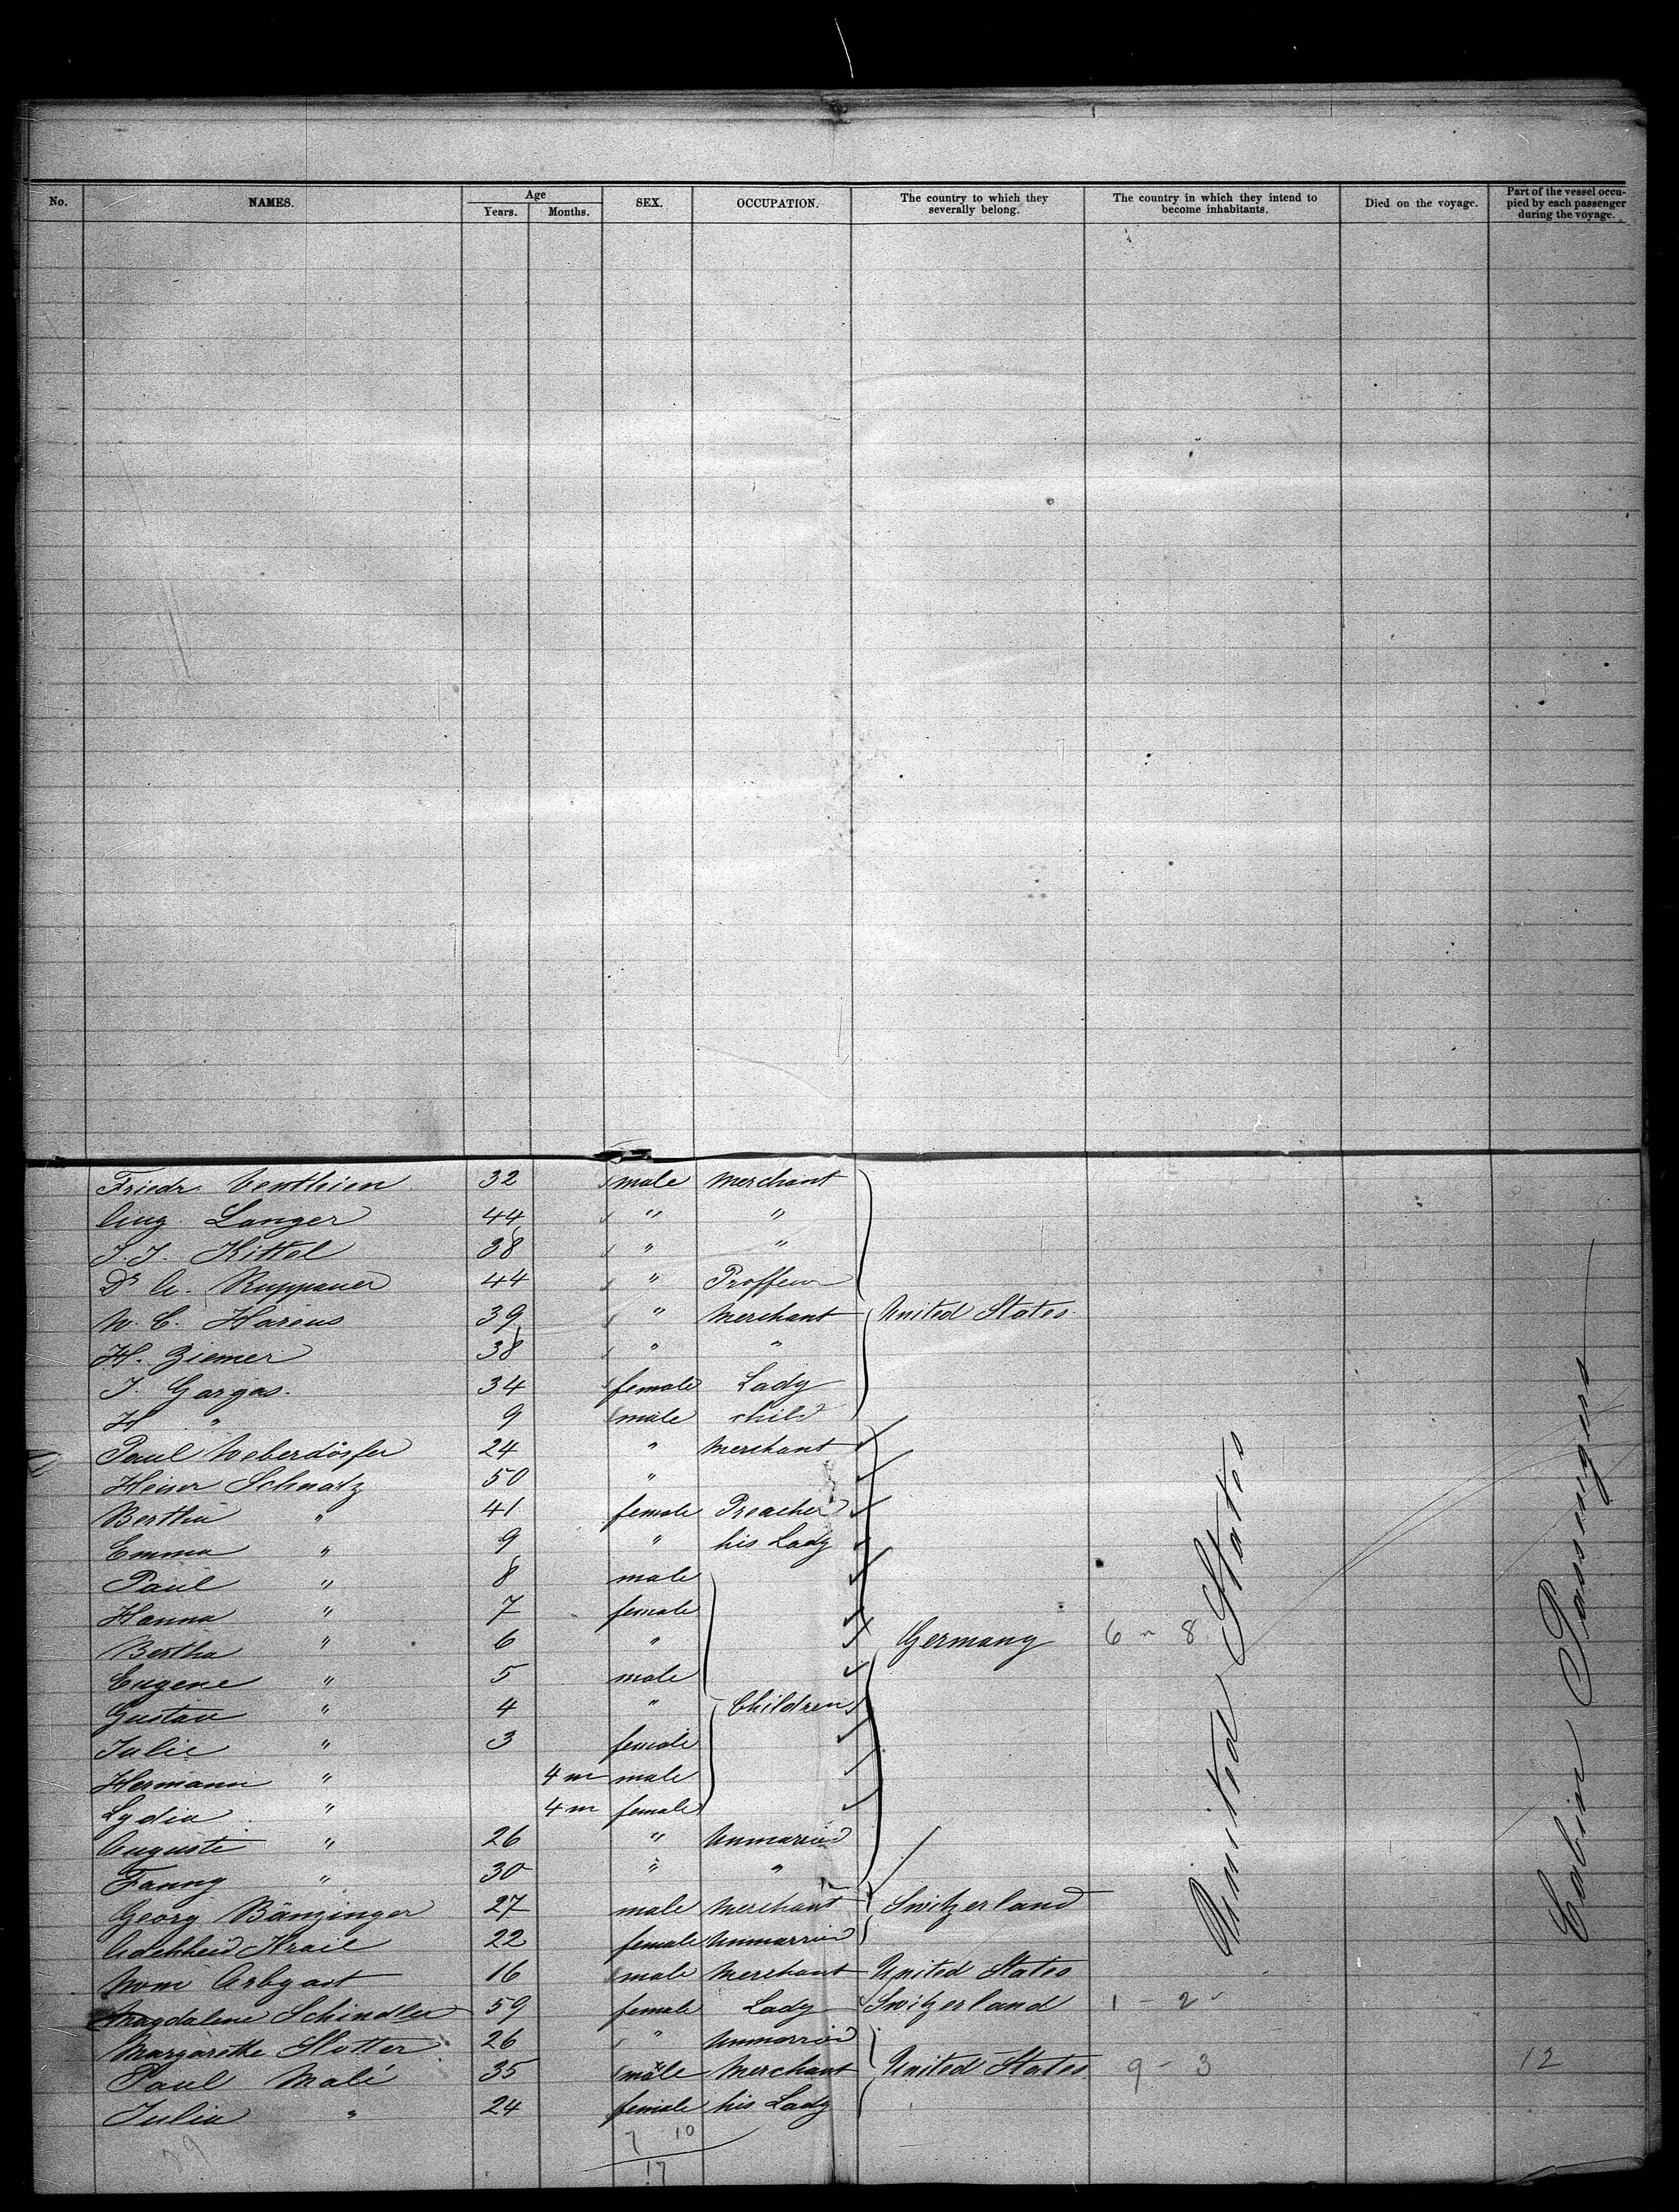 No. NAMES. Age Years. Months. SEX. OCCUPATION. The country to which they severally belong. The country in which they intend to become inhabitants. Died on the voyage. Part of the vessel occupied by each passenger during the voyage.
Friedr. Venthien 32 male Merchant
Aug. Langer 44 " "
J. J. Kittel 38 " "
Dr A. Ruppaner 44 "
W. C. 39 " Merchant United States.
H. Ziemer 38 " "
J. Gargas. 34 female Lady
H " 9 male child
Paul Weberdörfer 24 " Merchant
Schnatz 50 "
Bertha " 41 female Preacher
Emma " 9 " his Lady
Paul " 8 male
Hanna " 7 female
Bertha " 6 " Germany 6 - 8
Eugene " 5 male
Gustav " 4 " Children
Julie " 3 female
Hermann " 4 m male
Lydia " 4 m female
Auguste " 26 " Unmarried
Fanny " 30 " "
Georg Bänzinger 27 male Merchant Switzerland
Adelheid 22 female Unmarried
16 male Merchant United States
Magdalene Schindler 59 female Lady Switzerland 1 - 2
Margarethe 26 " Unmarried
Paul Malé 35 male Merchant United States 9 - 3 12
Julia " 24 female his Lady
7 10
17
United States
Cabin Passengers